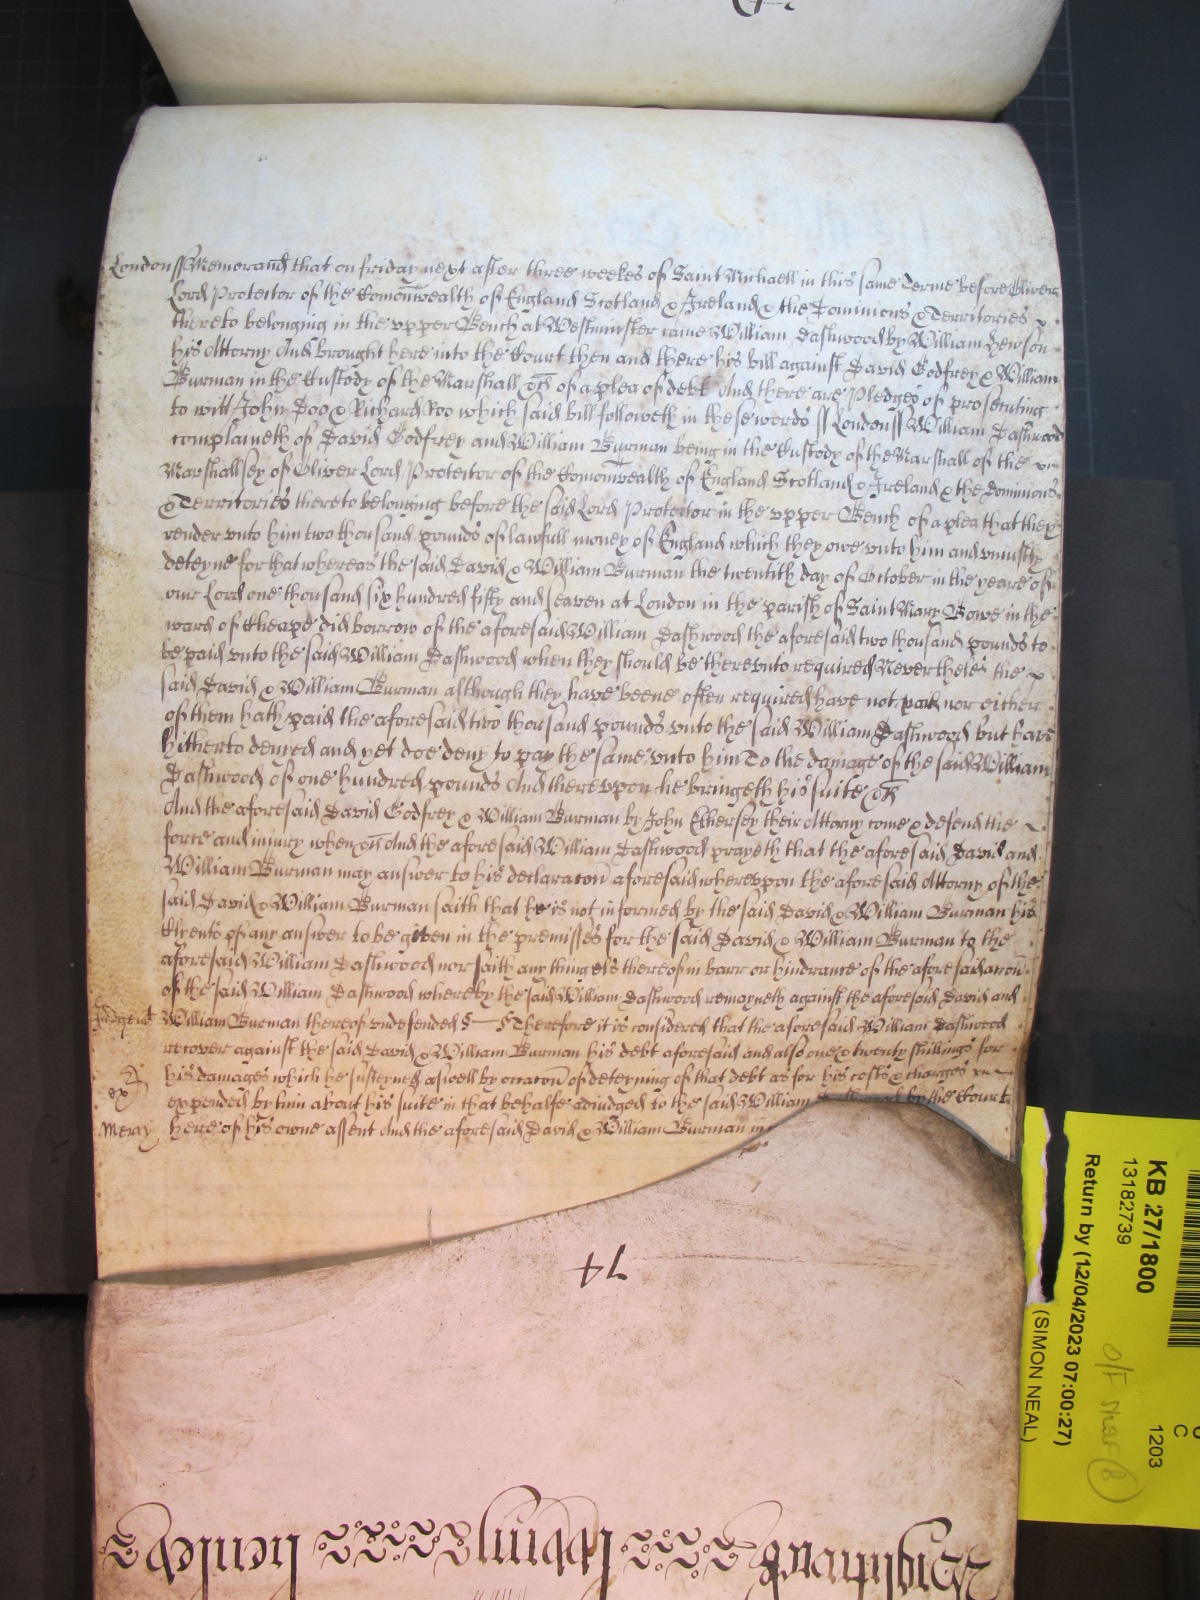 London ss Memorand that on friday next after three weekes of Saint Michaell in this same Terme before Oliver
Lord Protector of the Comonwealth of England Scotland & Ireland & the Dominions & Territories
thereto belonging in the vpper Bench at Westminster came William Dashwood by William Hewson
his Attorny And brought here into the Court then and there his bill against David Godfrey & William
Burman in the Custody of the Marshall &c of a plea of debt And there are Pledges of prosecuting
to witt John Doo & Richard Roo which said bill followeth in these words ss London ss William Dashwood
complaineth of David Godfrey and William Burman being in the Custody of the Marshall of the
Marshallsey of Oliver Lord Protector of the Comonwealth of England Scotland & Ireland & the Dominions
& Territories thereto belonging before the said Lord Protector in the vpper Bench of a plea that they
render vnto him two thousand pounds of lawfull money of England which they owe vnto him and vniustly
deteyne for that whereas the said David & William Burman the twentith day of October in the yeare of
our Lord one thousand six hundred fifty and seaven at London in the parish of Saint Mary Bowe in the
ward of Cheape did borrow of the aforesaid William Dashwood the aforesaid two thousand pounds to
be paid vnto the said William Dashwood when they should be therevnto required Nevertheles the
said David & William Burman although they have beene often required have not paid nor either
of them hath paid the aforesaid two thousand pounds vnto the said William Dashwood but have
hitherto denyed and yet doe deny to pay the same vnto him To the damage of the said William
Dashwood of one hundred pounds And therevpon he bringeth his suite &c
And the aforesaid David Godfrey & William Burman by John Ethersey their Attorny come & defend the
force and iniury when &c And the aforesaid William Dashwood prayeth that the aforesaid David and
William Burman may answer to his declaracon aforesaid wherevpon the aforesaid Attorny of the
said David & William Burman saith that he is not informed by the said David & William Burman his
Clyents of any answer to be given in the premisses for the said David & William Burman to the
aforesaid William Dashwood nor saith any thing els thereof in barr or hindrance of the aforesaid accon
of the said William Dashwood whereby the said William Dashwood remayneth against the aforesaid David and
Judgent William Burman thereof vndefended Therefore it is considered that the aforesaid William Dashwood
recover against the said David & William Burman his debt aforesaid and also one & twenty shillings for
his damages which he susteyned aswell by occacon of deteyning of that debt as for his costs & charges
ex expended by him about his suite in that behalfe adiudged to the said William Dashwood by the Court
Mercy here of his owne assent And the aforesaid David & William Burman in
74
KB 27/1800
13182739
Return by (12/04/2023 07:00:27)
(SIMON NEAL)
1203
C